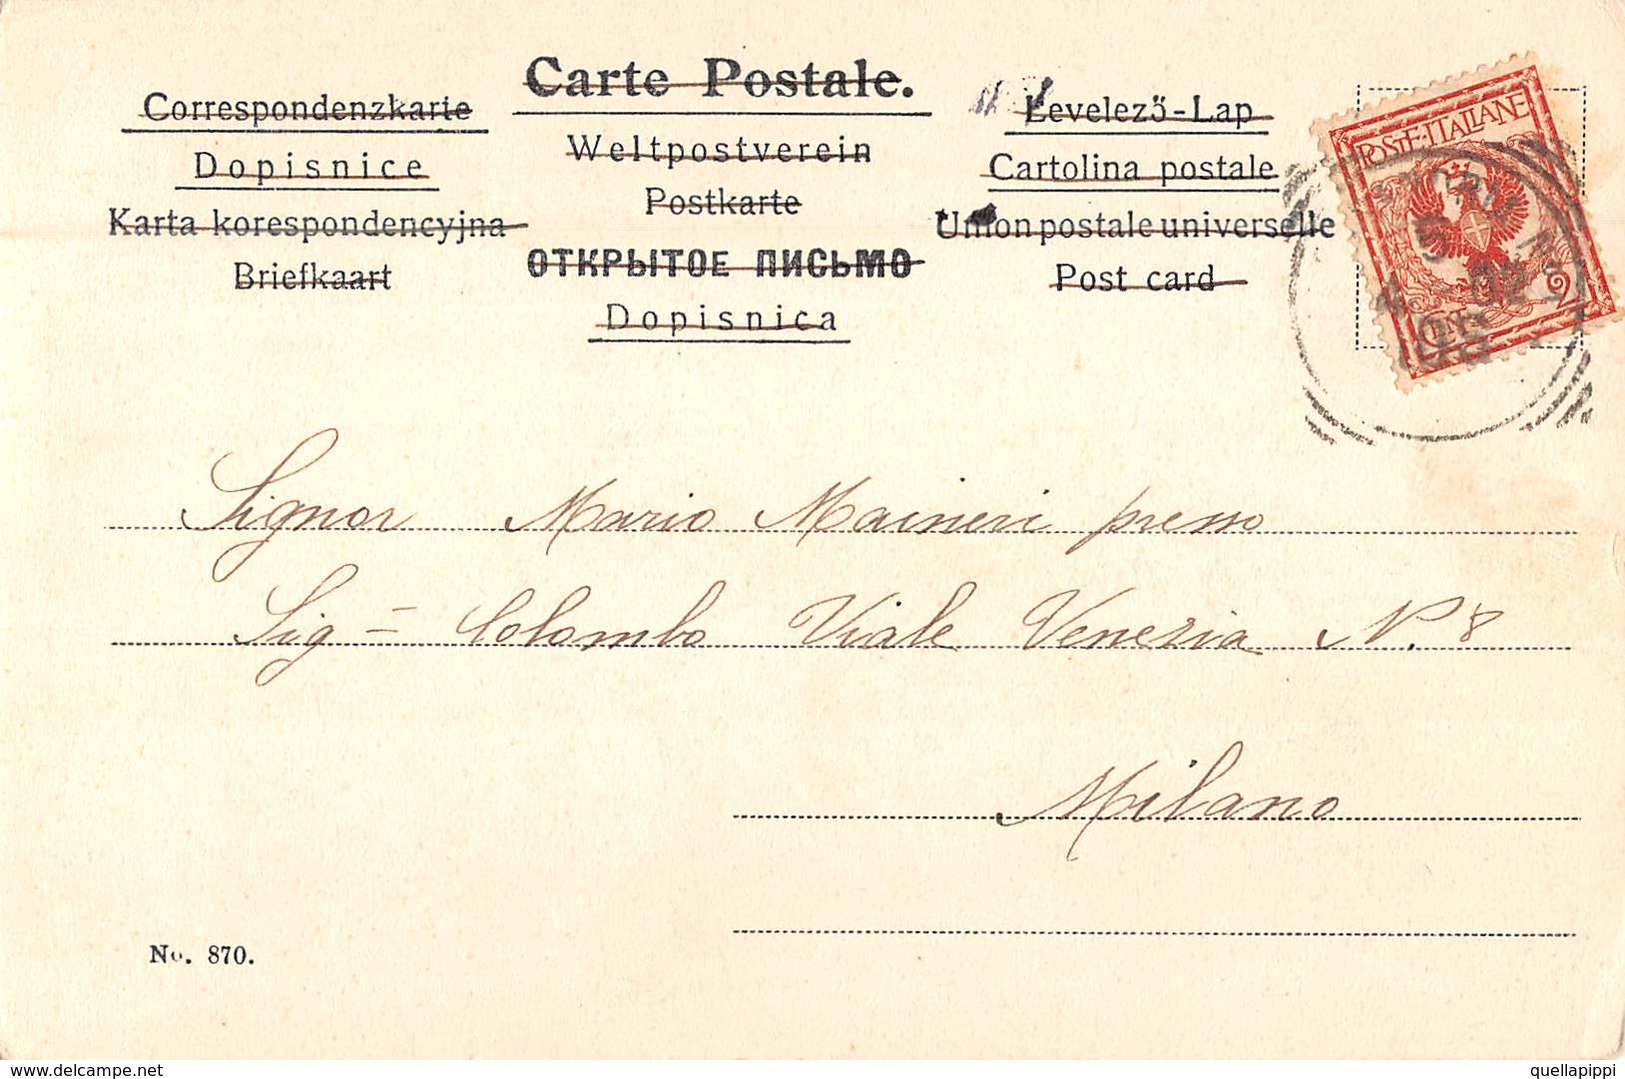 Carte Postale.
Correspondenzkarte
Dopisnice
Karta korespondencyjna
Briefkaart
Weltpostverein
Postkarte
ОТКРЫТОЕ ПИСЬМО
Dopisnica
Levelező-Lap
Cartolina postale
Union postale universelle
Post card
POSTE·ITALIANE
Signor Mario Maineri presso
Sig = Colombo Viale Venezia N. 8
Milano
No. 870.
delcampe.net
quellapippi